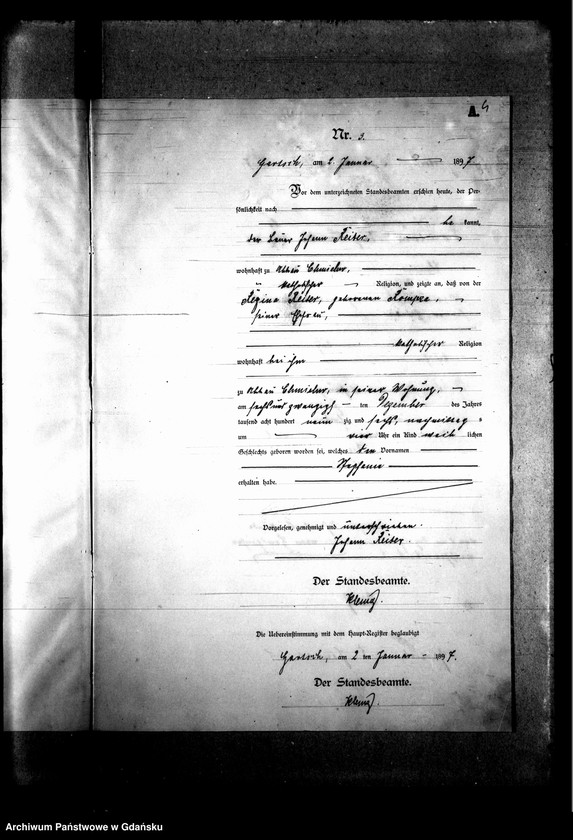 A. 4
Nr. 3.
am 2. Januar 1897
Vor dem unterzeichneten Standesbeamten erschien heute, der Per-
sönlichkeit nach
be kannt,
der Bauer Johann Reiter,
wohnhaft zu Abbau Chmielno,
katholischer Religion, und zeigte an, daß von der
Regina Reiter, geborenen
seiner Ehefrau,
katholischer Religion
wohnhaft bei ihm
zu Abbau Chmielno, in seiner Wohnung,
am sechsundzwanzigsten Dezember des Jahres
tausend acht hundert neun zig und sechs, nachmittags
um vier Uhr ein Kind weib lichen
Geschlechts geboren worden sei, welches den Vornamen
Stephanie
erhalten habe.
Vorgelesen, genehmigt und unterschrieben.
Johann Reiter.
Der Standesbeamte.
Die Uebereinstimmung mit dem Haupt-Register beglaubigt
am 2 ten Januar 1897.
Der Standesbeamte.
Archiwum Państwowe w Gdańsku